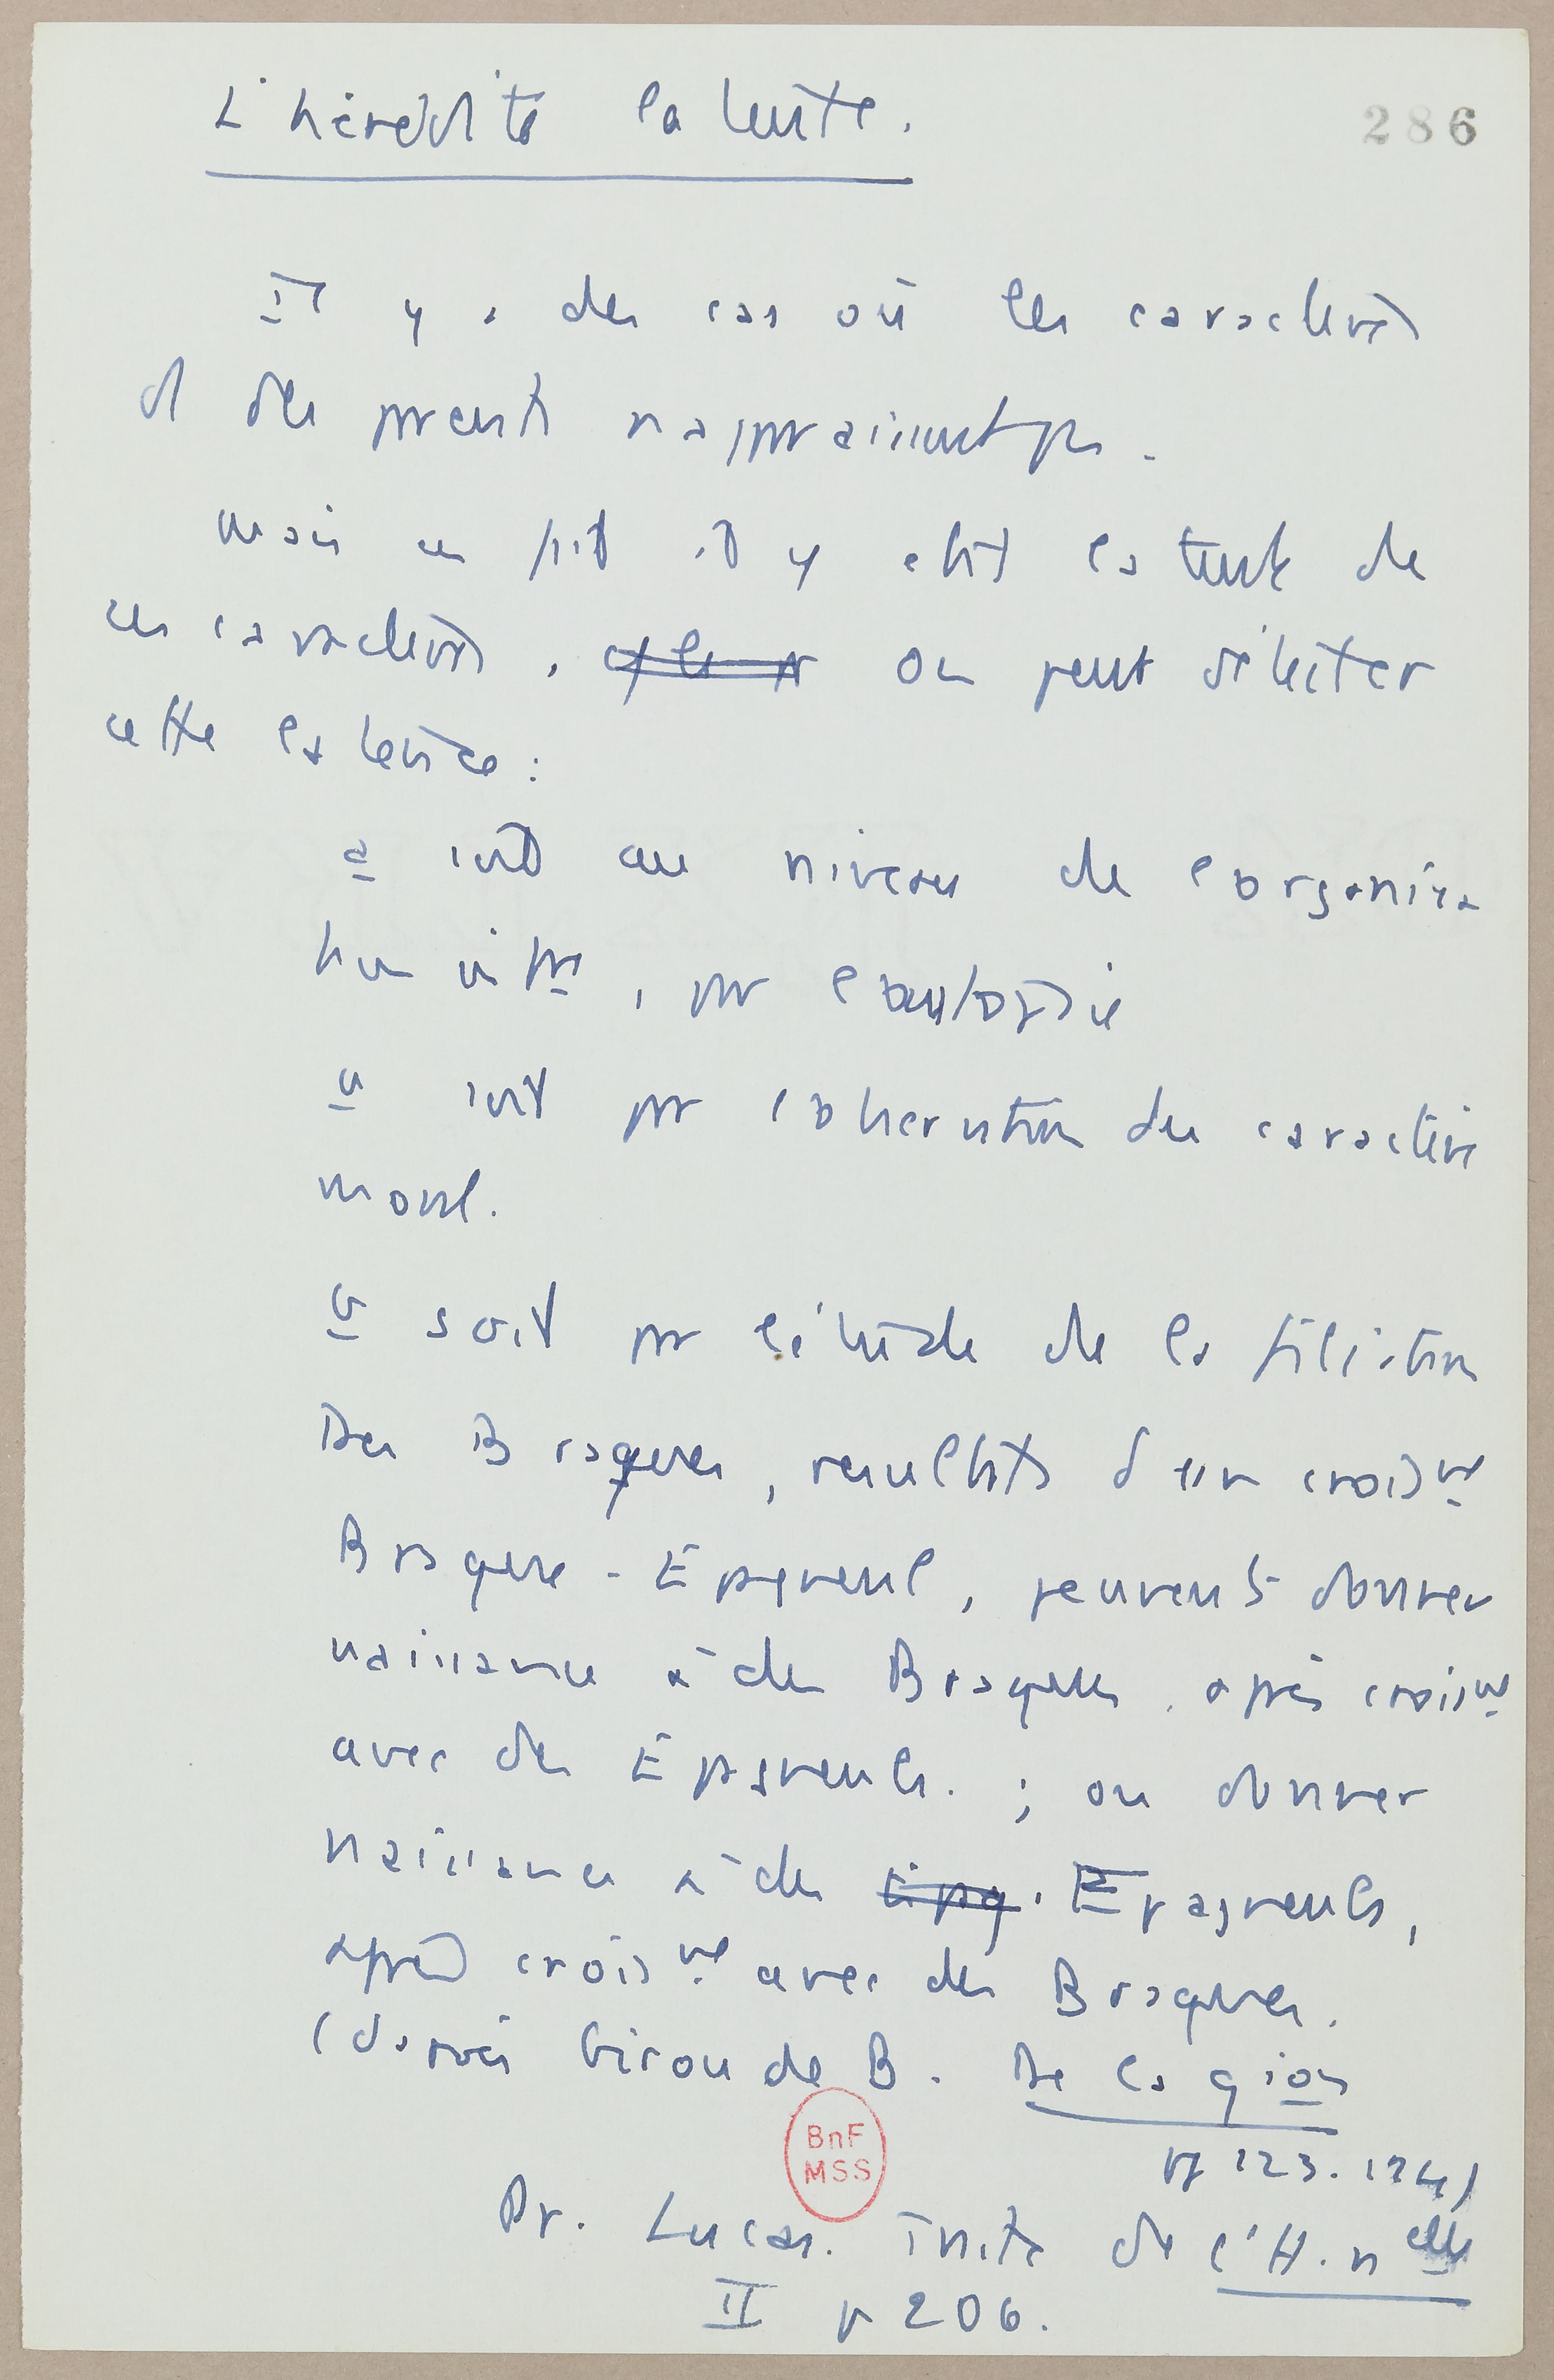 L'hérédité latente.
286
Il y a des cas où les caractères
des parents n'apparaissent pas.
Mais en fait il y a latente de
ces caractères, on peut détecter
cette latence :
a soit au niveau de l'organisa
tion interne, par l'autopsie
soit par l'observation du caractère
moral.
soit par l'étude de la filiation
Des Braques, résultats d'un croisMt
Braque - Epagneul, peuvent donner
naissance à des Braques, après croisMt
avec des Epagneuls. ; ou donner
naissance à des Epg. Epagneuls,
après croisMt avec des Braques.
(d'après Girou de B. De la gion
pp 123.124)
BnF
MSS
Pr. Lucas. Traité de l'H. nelle
II p 206.